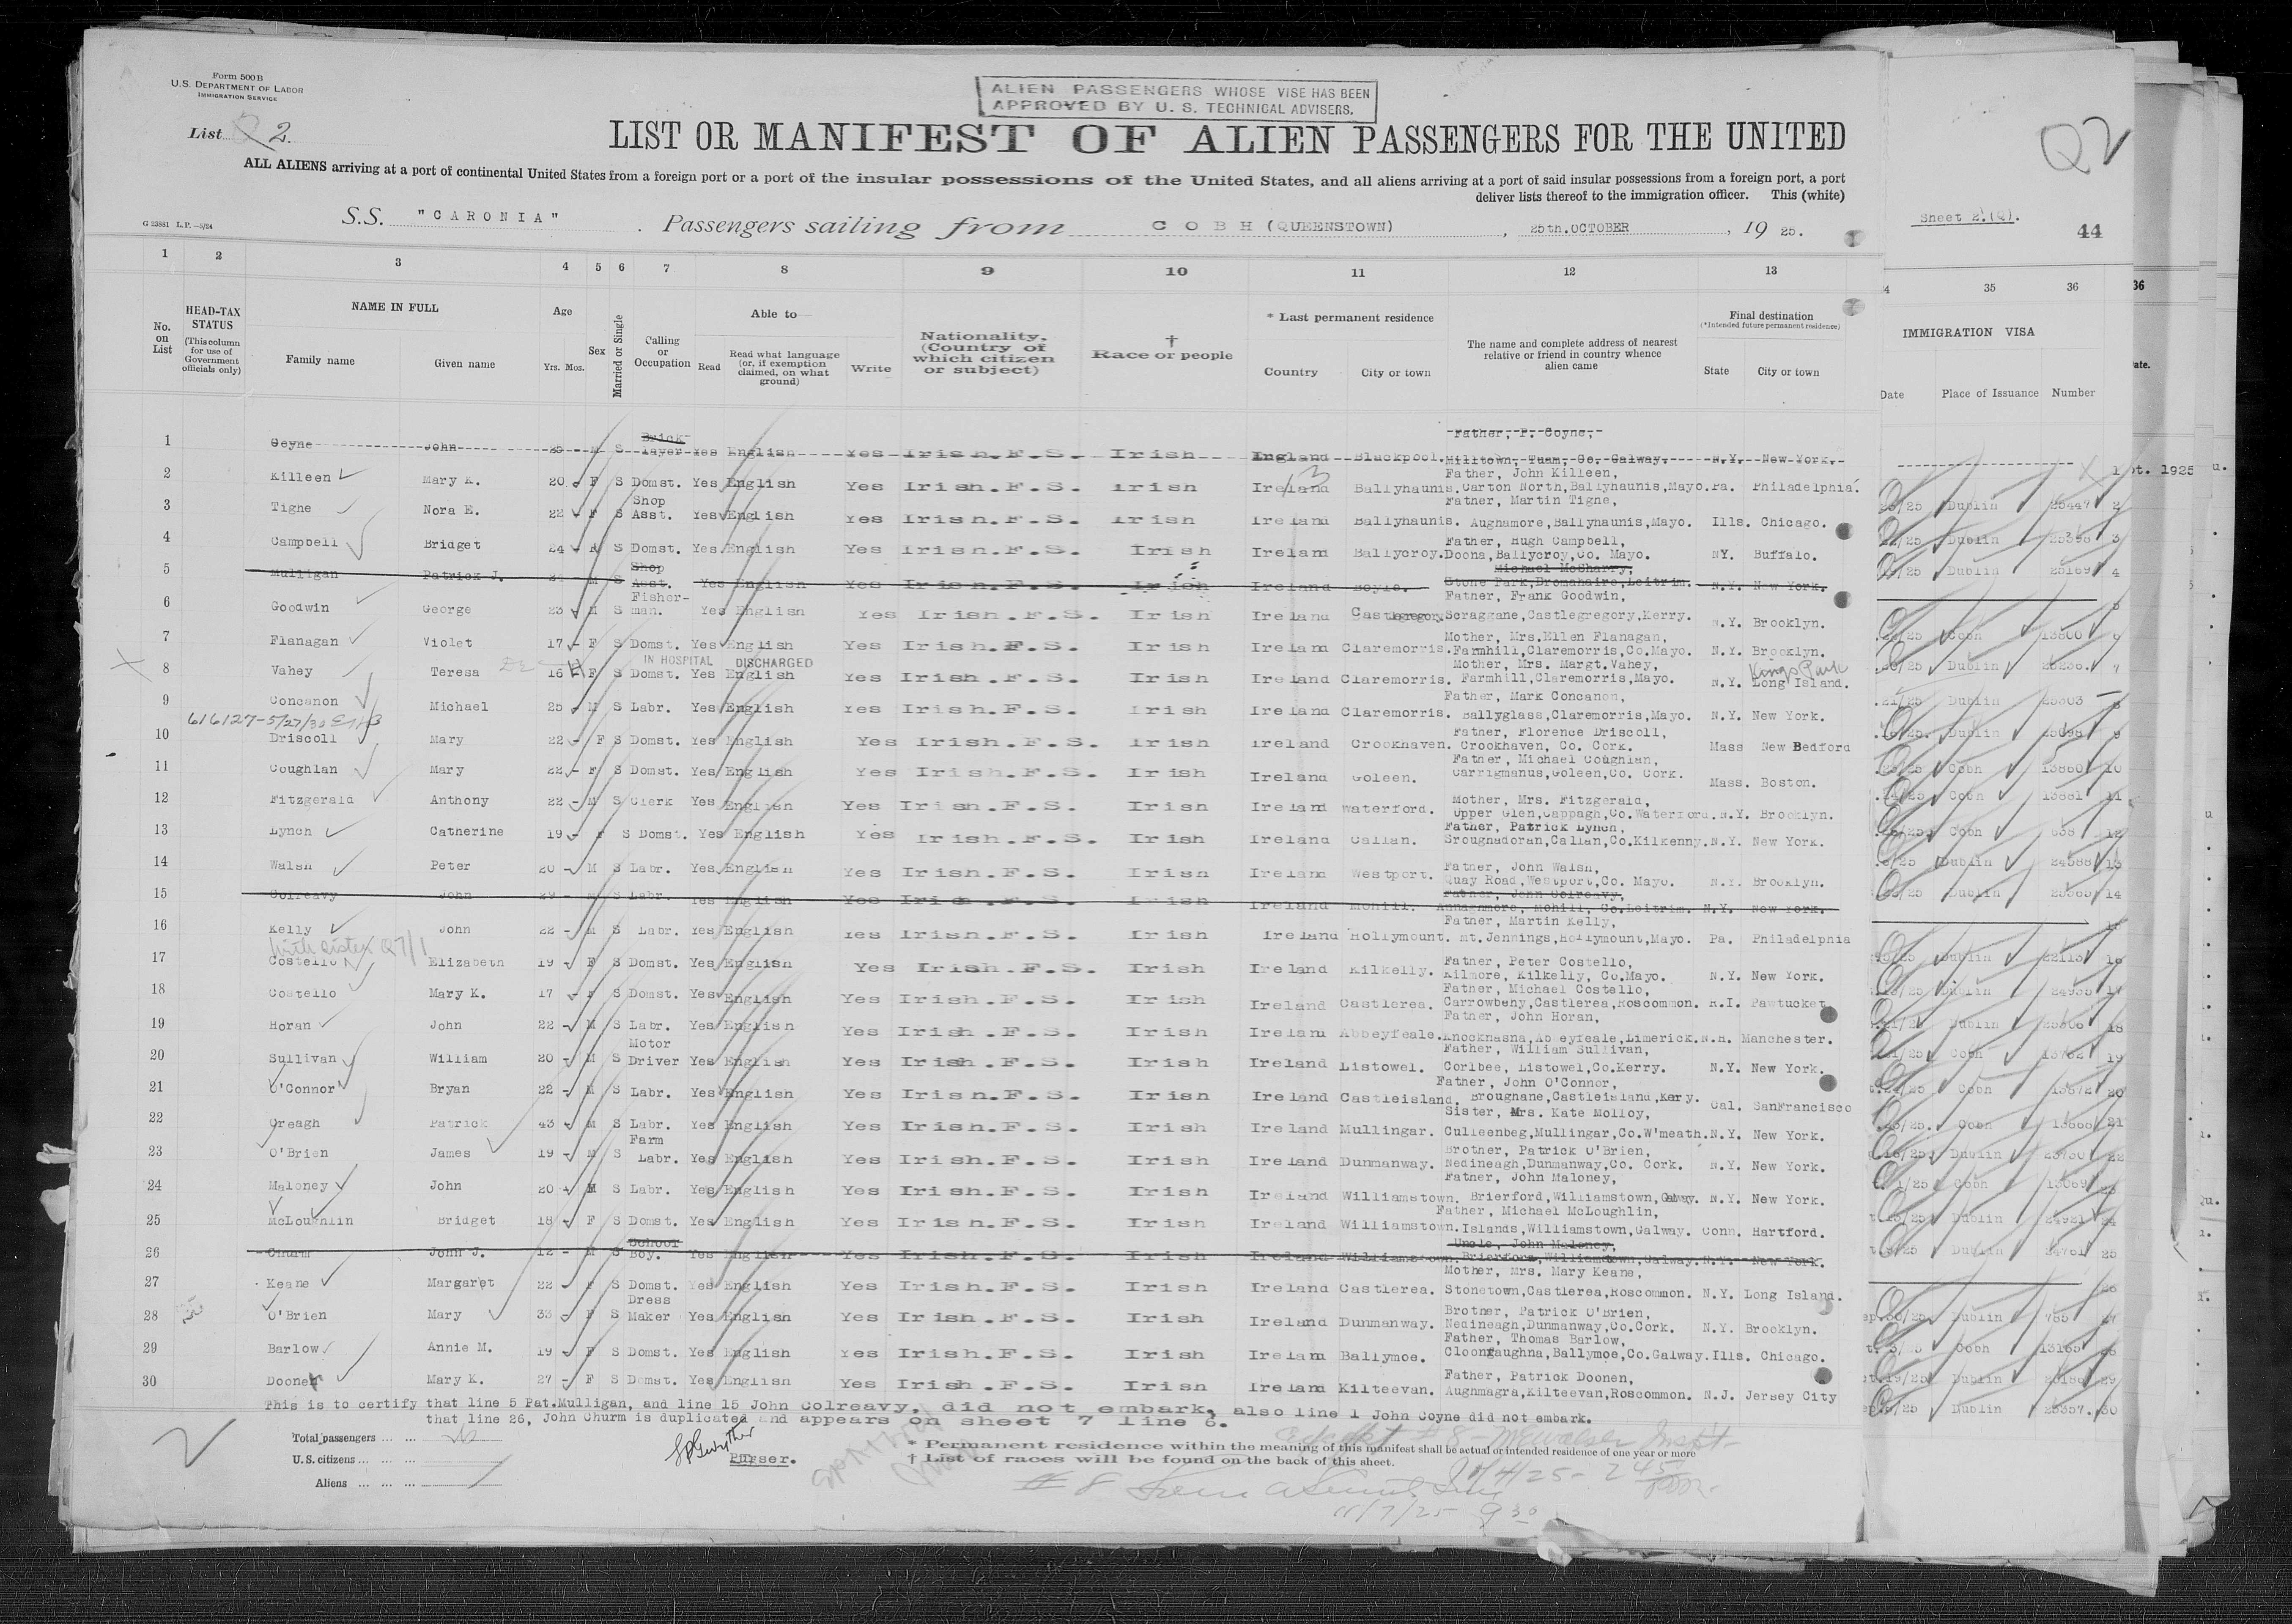 Form 500 B
U.S. DEPARTMENT OF LABOR
IMMIGRATION SERVICE
ALIEN PASSENGERS WHOSE VISE HAS BEEN
APPROVED BY U. S. TECHNICAL ADVISERS.
List 2.
LIST OR MANIFEST OF ALIEN PASSENGERS FOR THE UNITED
Q2
ALL ALIENS arriving at a port of continental United States from a foreign port or a port of the insular possessions of the United States, and all aliens arriving at a port of said insular possessions from a foreign port, a port
deliver lists thereof to the immigration officer. This (white)
G 23881 L.P.—5/24
S.S. "CARONIA" Passengers sailing from COBH (QUEENSTOWN), 25th.OCTOBER, 19 25.
Sheet 2.(Q).
44
1 2 3 4 5 6 7 8 9 10 11 12 13 4 35 36 36
No. on List
HEAD-TAX STATUS (This column for use of Government officials only)
NAME IN FULL Family name Given name
Age Yrs. Mos.
Sex
Married or Single
Calling or Occupation
Able to Read Read what language (or, if exemption claimed, on what ground) Write
Nationality. (Country of which citizen or subject)
† Race or people
* Last permanent residence Country City or town
The name and complete address of nearest relative or friend in country whence alien came
Final destination (*Intended future permanent residence) State City or town
IMMIGRATION VISA Date Place of Issuance Number
1 Coyne John 25 M S Brick-layer Yes English Yes Irish.F.S. Irish England Blackpool. Father, P. Coyne, Milltown, Tuam, Co. Galway. N.Y. New York.
2 Killeen Mary K. 20 F S Domst. Yes English Yes Irish.F.S. Irish Ireland Ballyhaunis. Father, John Killeen, Carton North,Ballyhaunis,Mayo. Pa. Philadelphia. Dublin 25447 2
3 Tighe Nora E. 22 F S Shop Asst. Yes English Yes Irish.F.S. Irish Ireland Ballyhaunis. Father, Martin Tigne, Aughamore,Ballyhaunis,Mayo. Ills. Chicago. Dublin 25398 3
4 Campbell Bridget 24 F S Domst. Yes English Yes Irish.F.S. Irish Ireland Ballycroy. Father, Hugh Campbell, Doona,Ballycroy,Co. Mayo. NY. Buffalo. Dublin 25169 4
5 Mulligan Patrick J. M S Shop Asst. Yes English Yes Irish.F.S. Irish Ireland Boyle. Michael McSharry, Stone Park,Dromahaire,Leitrim. N.Y. New York. 5
6 Goodwin George 23 M S Fisher-man. Yes English Yes Irish.F.S. Irish Ireland Castlegregory. Father, Frank Goodwin, Scraggane,Castlegregory,Kerry. N.Y. Brooklyn. Cobh 13800 6
7 Flanagan Violet 17 F S Domst. Yes English Yes Irish.F.S. Irish Ireland Claremorris. Mother, Mrs.Ellen Flanagan, Farmhill,Claremorris,Co.Mayo. N.Y. Brooklyn. Dublin 25236. 7
IN HOSPITAL DISCHARGED
8 Vahey Teresa 16 F S Domst. Yes English Yes Irish.F.S. Irish Ireland Claremorris. Mother, Mrs. Margt.Vahey, Farmhill,Claremorris,Mayo. N.Y. Kings Park Long Island. Dublin 25303 8
9 Concanon Michael 25 M S Labr. Yes English Yes Irish.F.S. Irish Ireland Claremorris. Father, Mark Concanon, Ballyglass,Claremorris,Mayo. N.Y. New York. Dublin 25098 9
616127-5/27/30
10 Driscoll Mary 22 F S Domst. Yes English Yes Irish.F.S. Irish Ireland Crookhaven. Father, Florence Driscoll, Crookhaven, Co. Cork. Mass New Bedford Cobh 13860 10
11 Coughlan Mary 22 F S Domst. Yes English Yes Irish.F.S. Irish Ireland Goleen. Father, Michael Coughlan, Carrigmanus,Goleen,Co. Cork. Mass. Boston. Cobh 13881 11
12 Fitzgerald Anthony 22 M S Clerk Yes English Yes Irish.F.S. Irish Ireland Waterford. Mother, Mrs. Fitzgerald, Upper Glen,Cappagh,Co.Waterford. N.Y. Brooklyn. Cobh 638 12
13 Lynch Catherine 19 F S Domst. Yes English Yes Irish.F.S. Irish Ireland Callan. Father, Patrick Lynch, Sroughadoran,Callan,Co.Kilkenny. N.Y. New York. Dublin 24588 13
14 Walsh Peter 20 M S Labr. Yes English Yes Irish.F.S. Irish Ireland Westport. Father, John Walsh, Quay Road,Westport,Co. Mayo. N.Y. Brooklyn. Dublin 25365 14
15 Colreavy John 29 M S Labr. Yes English Yes Irish.F.S. Irish Ireland Mohill. Father, John Colreavy, Annaghmore, Mohill, Co.Leitrim. N.Y. New York.
16 Kelly John 22 M S Labr. Yes English Yes Irish.F.S. Irish Ireland Hollymount. Father, Martin Kelly, Mt.Jennings,Hollymount,Mayo. Pa. Philadelphia Dublin 22113 16
with sister Q7/1
17 Costello Elizabeth 19 F S Domst. Yes English Yes Irish.F.S. Irish Ireland Kilkelly. Father, Peter Costello, Kilmore, Kilkelly, Co.Mayo. N.Y. New York. Dublin 24938 17
18 Costello Mary K. 17 F S Domst. Yes English Yes Irish.F.S. Irish Ireland Castlerea. Father, Michael Costello, Carrowbehy,Castlerea,Roscommon. R.I. Pawtucket Dublin 25306 18
19 Horan John 22 M S Labr. Yes English Yes Irish.F.S. Irish Ireland Abbeyfeale. Father, John Horan, Knocknasna,Ab eyfeale,Limerick. N.H. Manchester. Cobh 13762 19
20 Sullivan William 20 M S Motor Driver Yes English Yes Irish.F.S. Irish Ireland Listowel. Father, William Sullivan, Corlbee, Listowel,Co.Kerry. N.Y. New York. Cobh 13872 20
21 O'Connor Bryan 22 M S Labr. Yes English Yes Irish.F.S. Irish Ireland Castleisland. Father, John O'Connor, Broughane,Castleisland,Kery. Cal. SanFrancisco Cobh 13668 21
22 Creagh Patrick 43 M S Labr. Yes English Yes Irish.F.S. Irish Ireland Mullingar. Sister, Mrs. Kate Molloy, Culleenbeg,Mullingar,Co.W'meath. N.Y. New York. Dublin 23730 22
23 O'Brien James 19 M S Farm Labr. Yes English Yes Irish.F.S. Irish Ireland Dunmanway. Brother, Patrick O'Brien, Nedineagh,Dunmanway,Co. Cork. N.Y. New York. Cobh 13089 23
24 Maloney John 20 M S Labr. Yes English Yes Irish.F.S. Irish Ireland Williamstown. Father, John Maloney, Brierford,Williamstown,Galway. N.Y. New York. Dublin 24921 24
25 McLoughlin Bridget 18 F S Domst. Yes English Yes Irish.F.S. Irish Ireland Williamstown. Father, Michael McLoughlin, Islands,Williamstown,Galway. Conn. Hartford. Dublin 24761 25
26 Churm John J. 12 M S School Boy. Yes English Yes Irish.F.S. Irish Ireland Williamstown. Uncle, John Maloney, Brierford,Williamstown,Galway. N.Y. New York. 26
27 Keane Margaret 22 F S Domst. Yes English Yes Irish.F.S. Irish Ireland Castlerea. Mother, Mrs. Mary Keane, Stonetown,Castlerea,Roscommon. N.Y. Long Island. Dublin 785 27
28 O'Brien Mary 33 F S Dress Maker Yes English Yes Irish.F.S. Irish Ireland Dunmanway. Brother, Patrick O'Brien, Nedineagh,Dunmanway,Co.Cork. N.Y. Brooklyn. Cobh 13165 28
29 Barlow Annie M. 19 F S Domst. Yes English Yes Irish.F.S. Irish Ireland Ballymoe. Father, Thomas Barlow, Cloonfaughna,Ballymoe,Co.Galway. Ills. Chicago. Dublin 29
30 Doonen Mary K. 27 F S Domst. Yes English Yes Irish.F.S. Irish Ireland Kilteevan. Father, Patrick Doonen, Aughmagra,Kilteevan,Roscommon. N.J. Jersey City Dublin 25357. 30
This is to certify that line 5 Pat.Mulligan, and line 15 John Colreavy, did not embark, also line 1 John Coyne did not embark.
that line 26, John Churm is duplicated and appears on sheet 7 line 6.
Total passengers
U.S. citizens
Aliens
Purser.
* Permanent residence within the meaning of this manifest shall be actual or intended residence of one year or more
† List of races will be found on the back of this sheet.
11/4/25 - 2 45 pm.
# 8
11/7/25 9 30